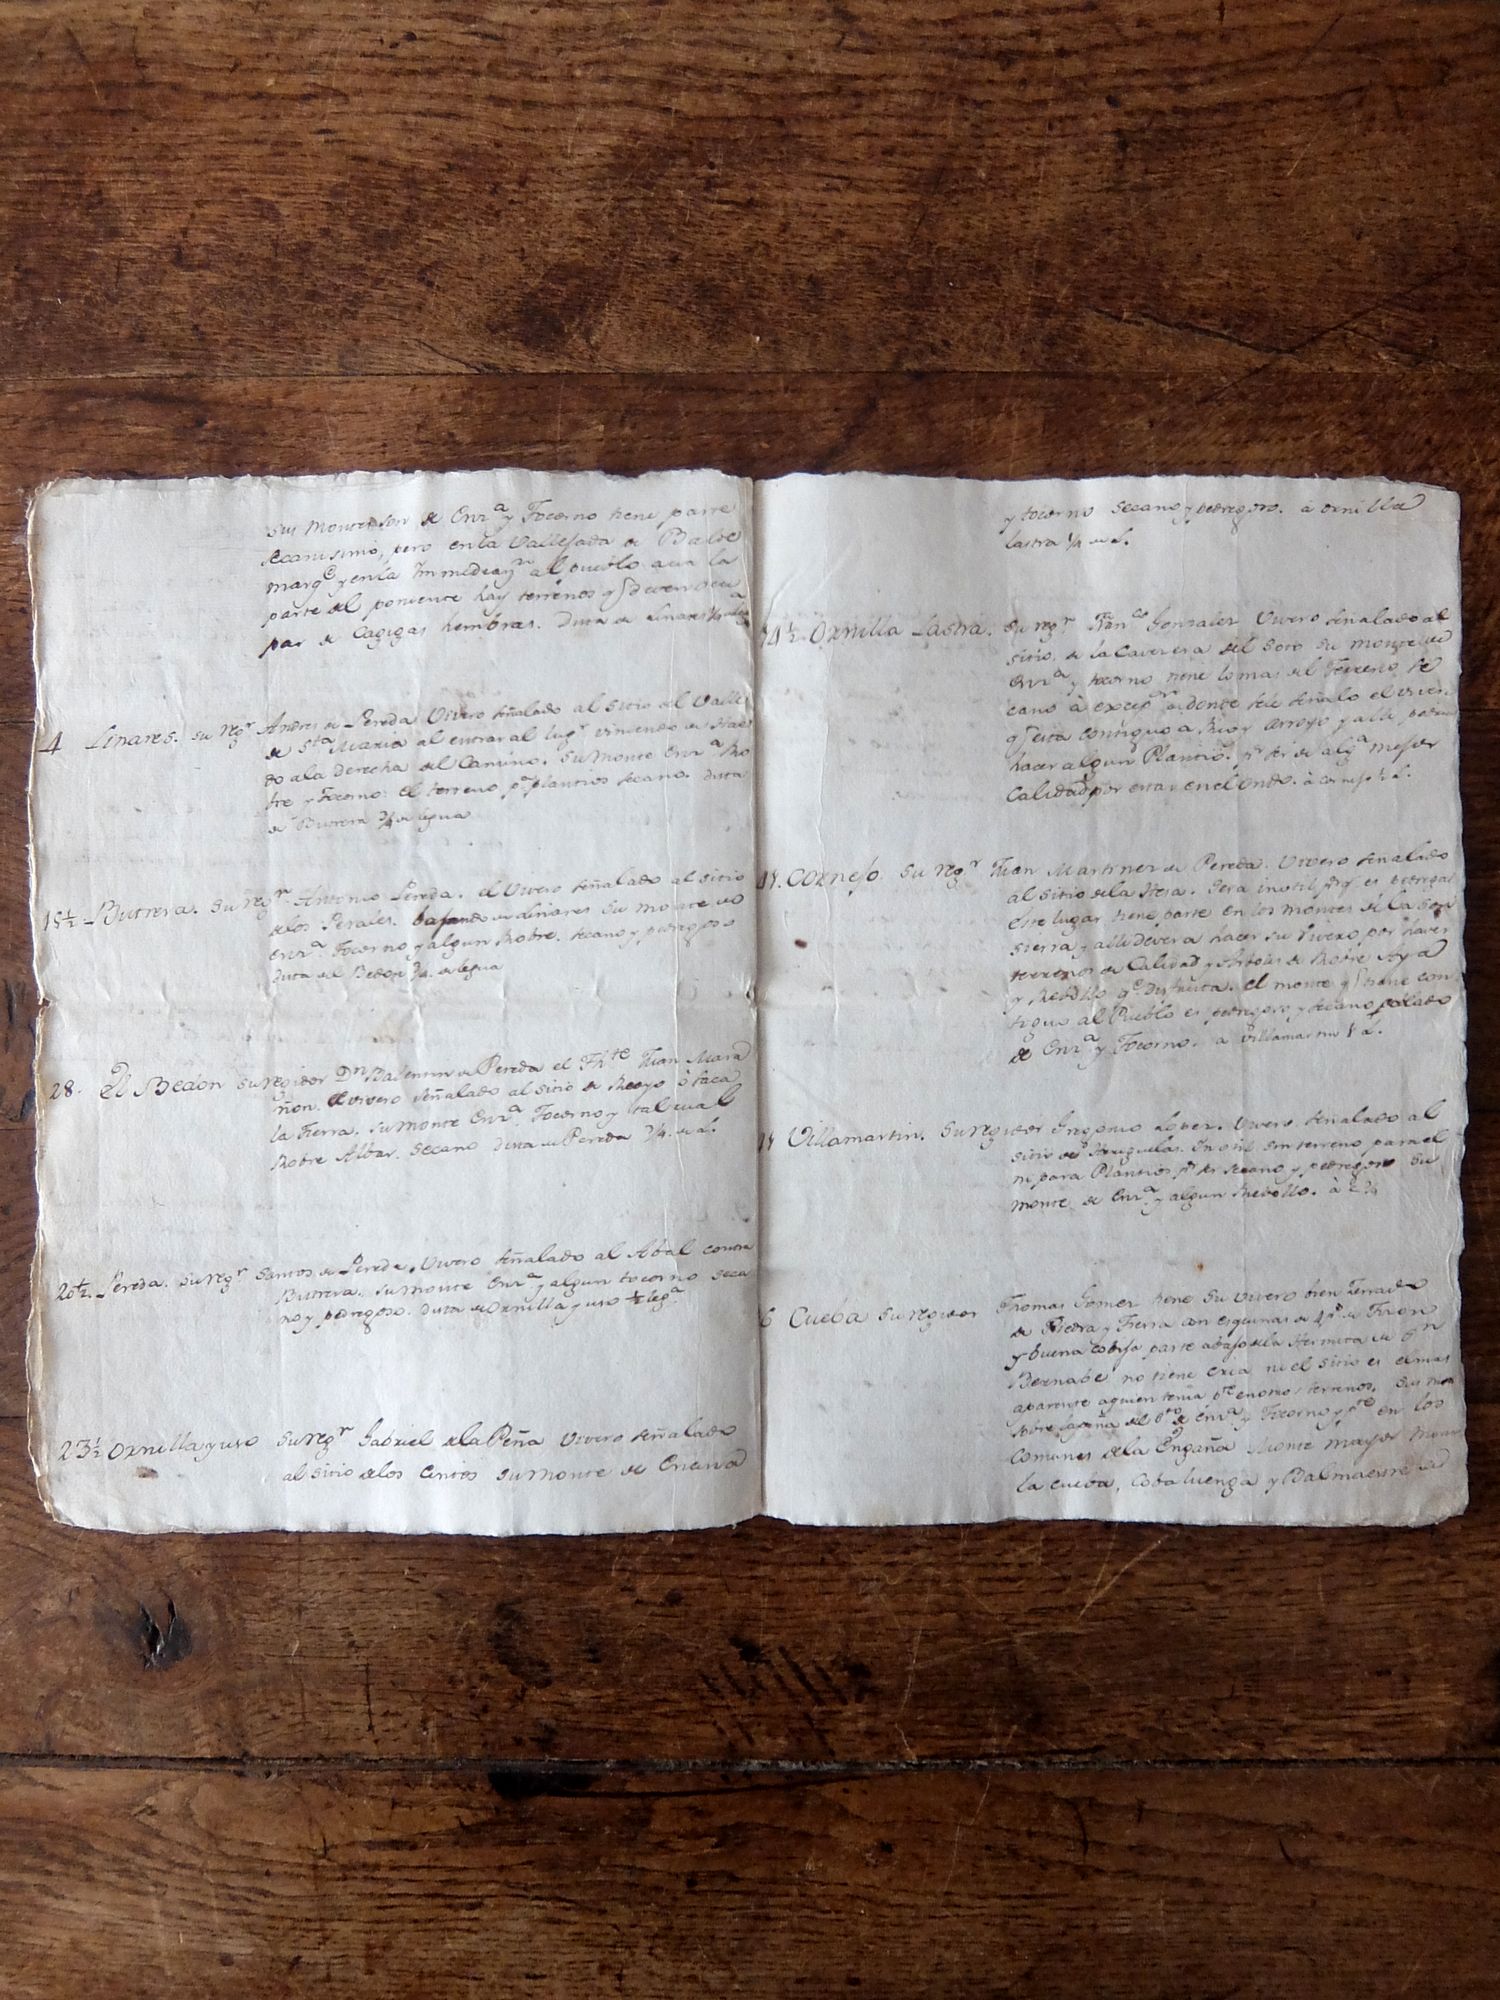 sus montes son de Enzª y Tocorno tiene parte
secanisimo, pero en la Vallejada de
y en la al pueblo acia la
parte del poniente hay terrenos q deven
par de Cagigas hembras. Dista de Linares
4 Linares. su regʳ Andres de Pereda Vivero señalado al sitio del Valle
de Sᵗᵃ Maria al entrar al lugʳ viniendo de
do a la derecha del Camino. Su monte Enzª Ro
bre y Tocorno: el terreno pª plantios secano. dista
de Butrera 3/4 de legua
15½ Butrera. su regʳ Antonio Pereda. el Vivero señalado al sitio
de los Perales. bajando de Linares Su monte es
Enzª Tocorno y algun Robre. secano y pedregoso
dista del Bedon 3/4 de legua
28. El Bedon su regidor Dⁿ Balentin de Pereda el Thᵗᵉ Juan Mara
ñon. El vivero señalado al sitio de Recoyo ò saca
la Tierra. su monte Enzª Tocorno y tal cual
Robre Albar. secano dista de Pereda 3/4 de L.
20½. Pereda. su regʳ Santos de Pereda. Vivero señalado al Abal contra
Butrera. su monte Enzª y algun tocorno seca
no y pedregoso. dista de Ornilla yuso ½ legª
23½ Ornilla yuso su regʳ Gabriel de la Peña Vivero señalado
al sitio de los Cintos su monte de Encina
y tocorno secano y pedregoso. à ornilla
lastra 1/4 de L.
14½. Ornilla Lastra. Su regʳ Franᶜᵒ Gonzalez Vivero señalado al
sitio de la Caverera del Soto su monte de
Enzª y tocorno tiene lo mas del Terreno se
cano à excepⁿ adonde se le señalo el viver
q esta contiguo a Rio y arroyo y alli podran
hacer algun Plantio. pʳ ser de algª mejor
Calidad por estar en el ondo. à cornejo ½ L.
Cornejo su regʳ Juan Martinez de Pereda. Vivero señalado
al sitio de la Hera. Sera inutil pʳq es pedregal
Este lugar tiene parte en los montes de la Son
sierra y alli devera hacer su vivero por haver
terrenos de Calidad y Arboles de Robre Aya
y Rebollo qᵉ disfruta. el monte q tiene con
tiguo al Pueblo es pedregoso y secano poblado
de Enzª y Tocorno. a Villamartin 1 L.
Villamartin. Su regidor Gregorio Lopez. Vivero señalado al
sitio de Inutil sin terreno para el
ni para Plantios pʳ ser secano y pedregoso su
monte de Enzª y algun Rebollo. à
6 Cueba su regidor Thomas Gomez tiene su vivero bien Zerrado
de Piedra y Tierra con esquinas de
y buena cobija parte abajo de la Hermita de Sⁿ
Bernabe no tiene cria ni el sitio es el mas
aparente aquien tenia otros terrenos. Sus mon
de Enzª y Tocorno y pᵗᵉ en los
comunes de la Engaña Monte mayor
la cueba, Cobaluenga y Balmaestre de